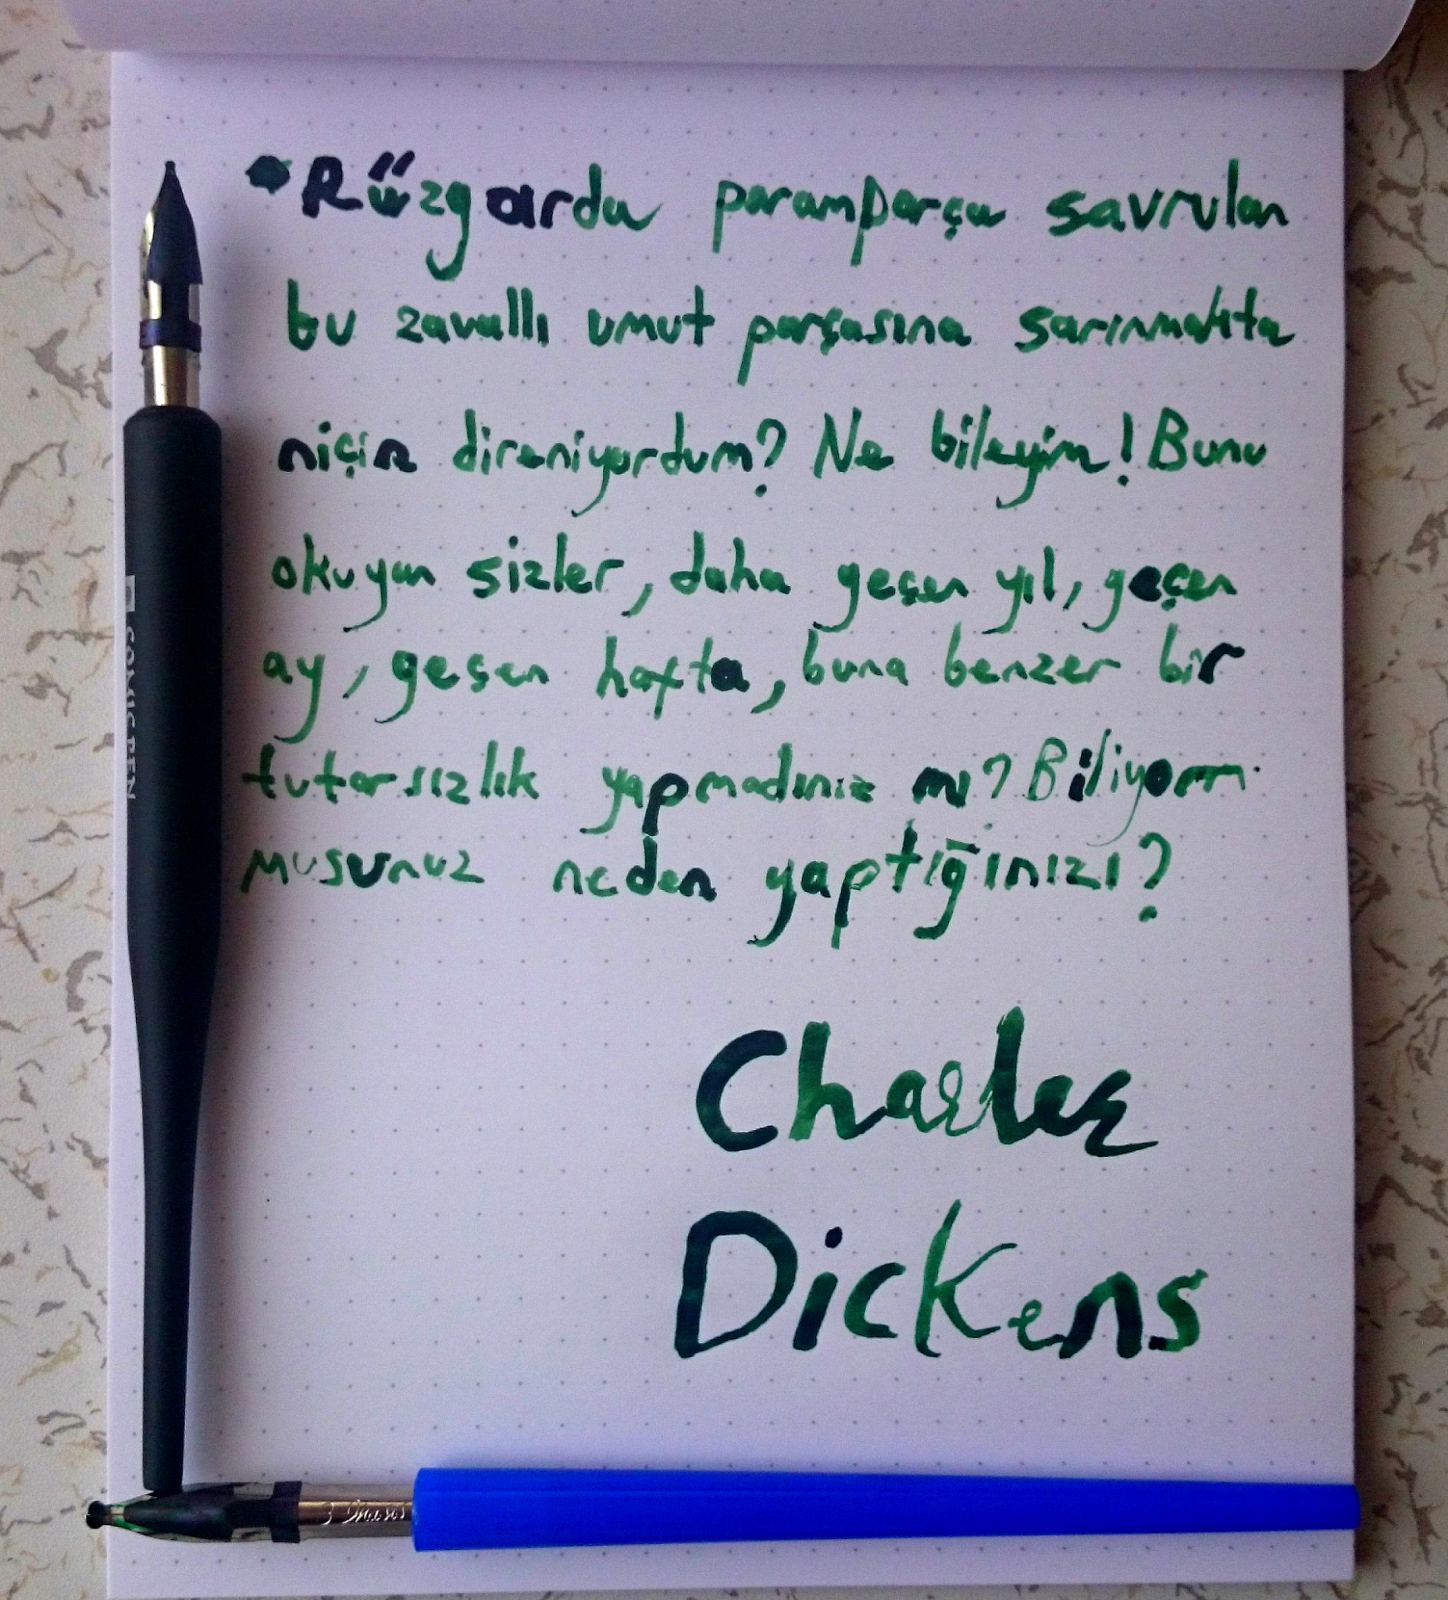 Rüzgarda paramparça savrulan
bu zavallı umut parçasına sarınmakta
niçin direniyordum? Ne bileyim! Bunu
okuyan sizler, daha geçen yıl, geçen
ay, geçen hafta, buna benzer bir
tutarsızlık yapmadınız mı? Biliyorm
musunuz neden yaptığınızı?
Charles
Dickens